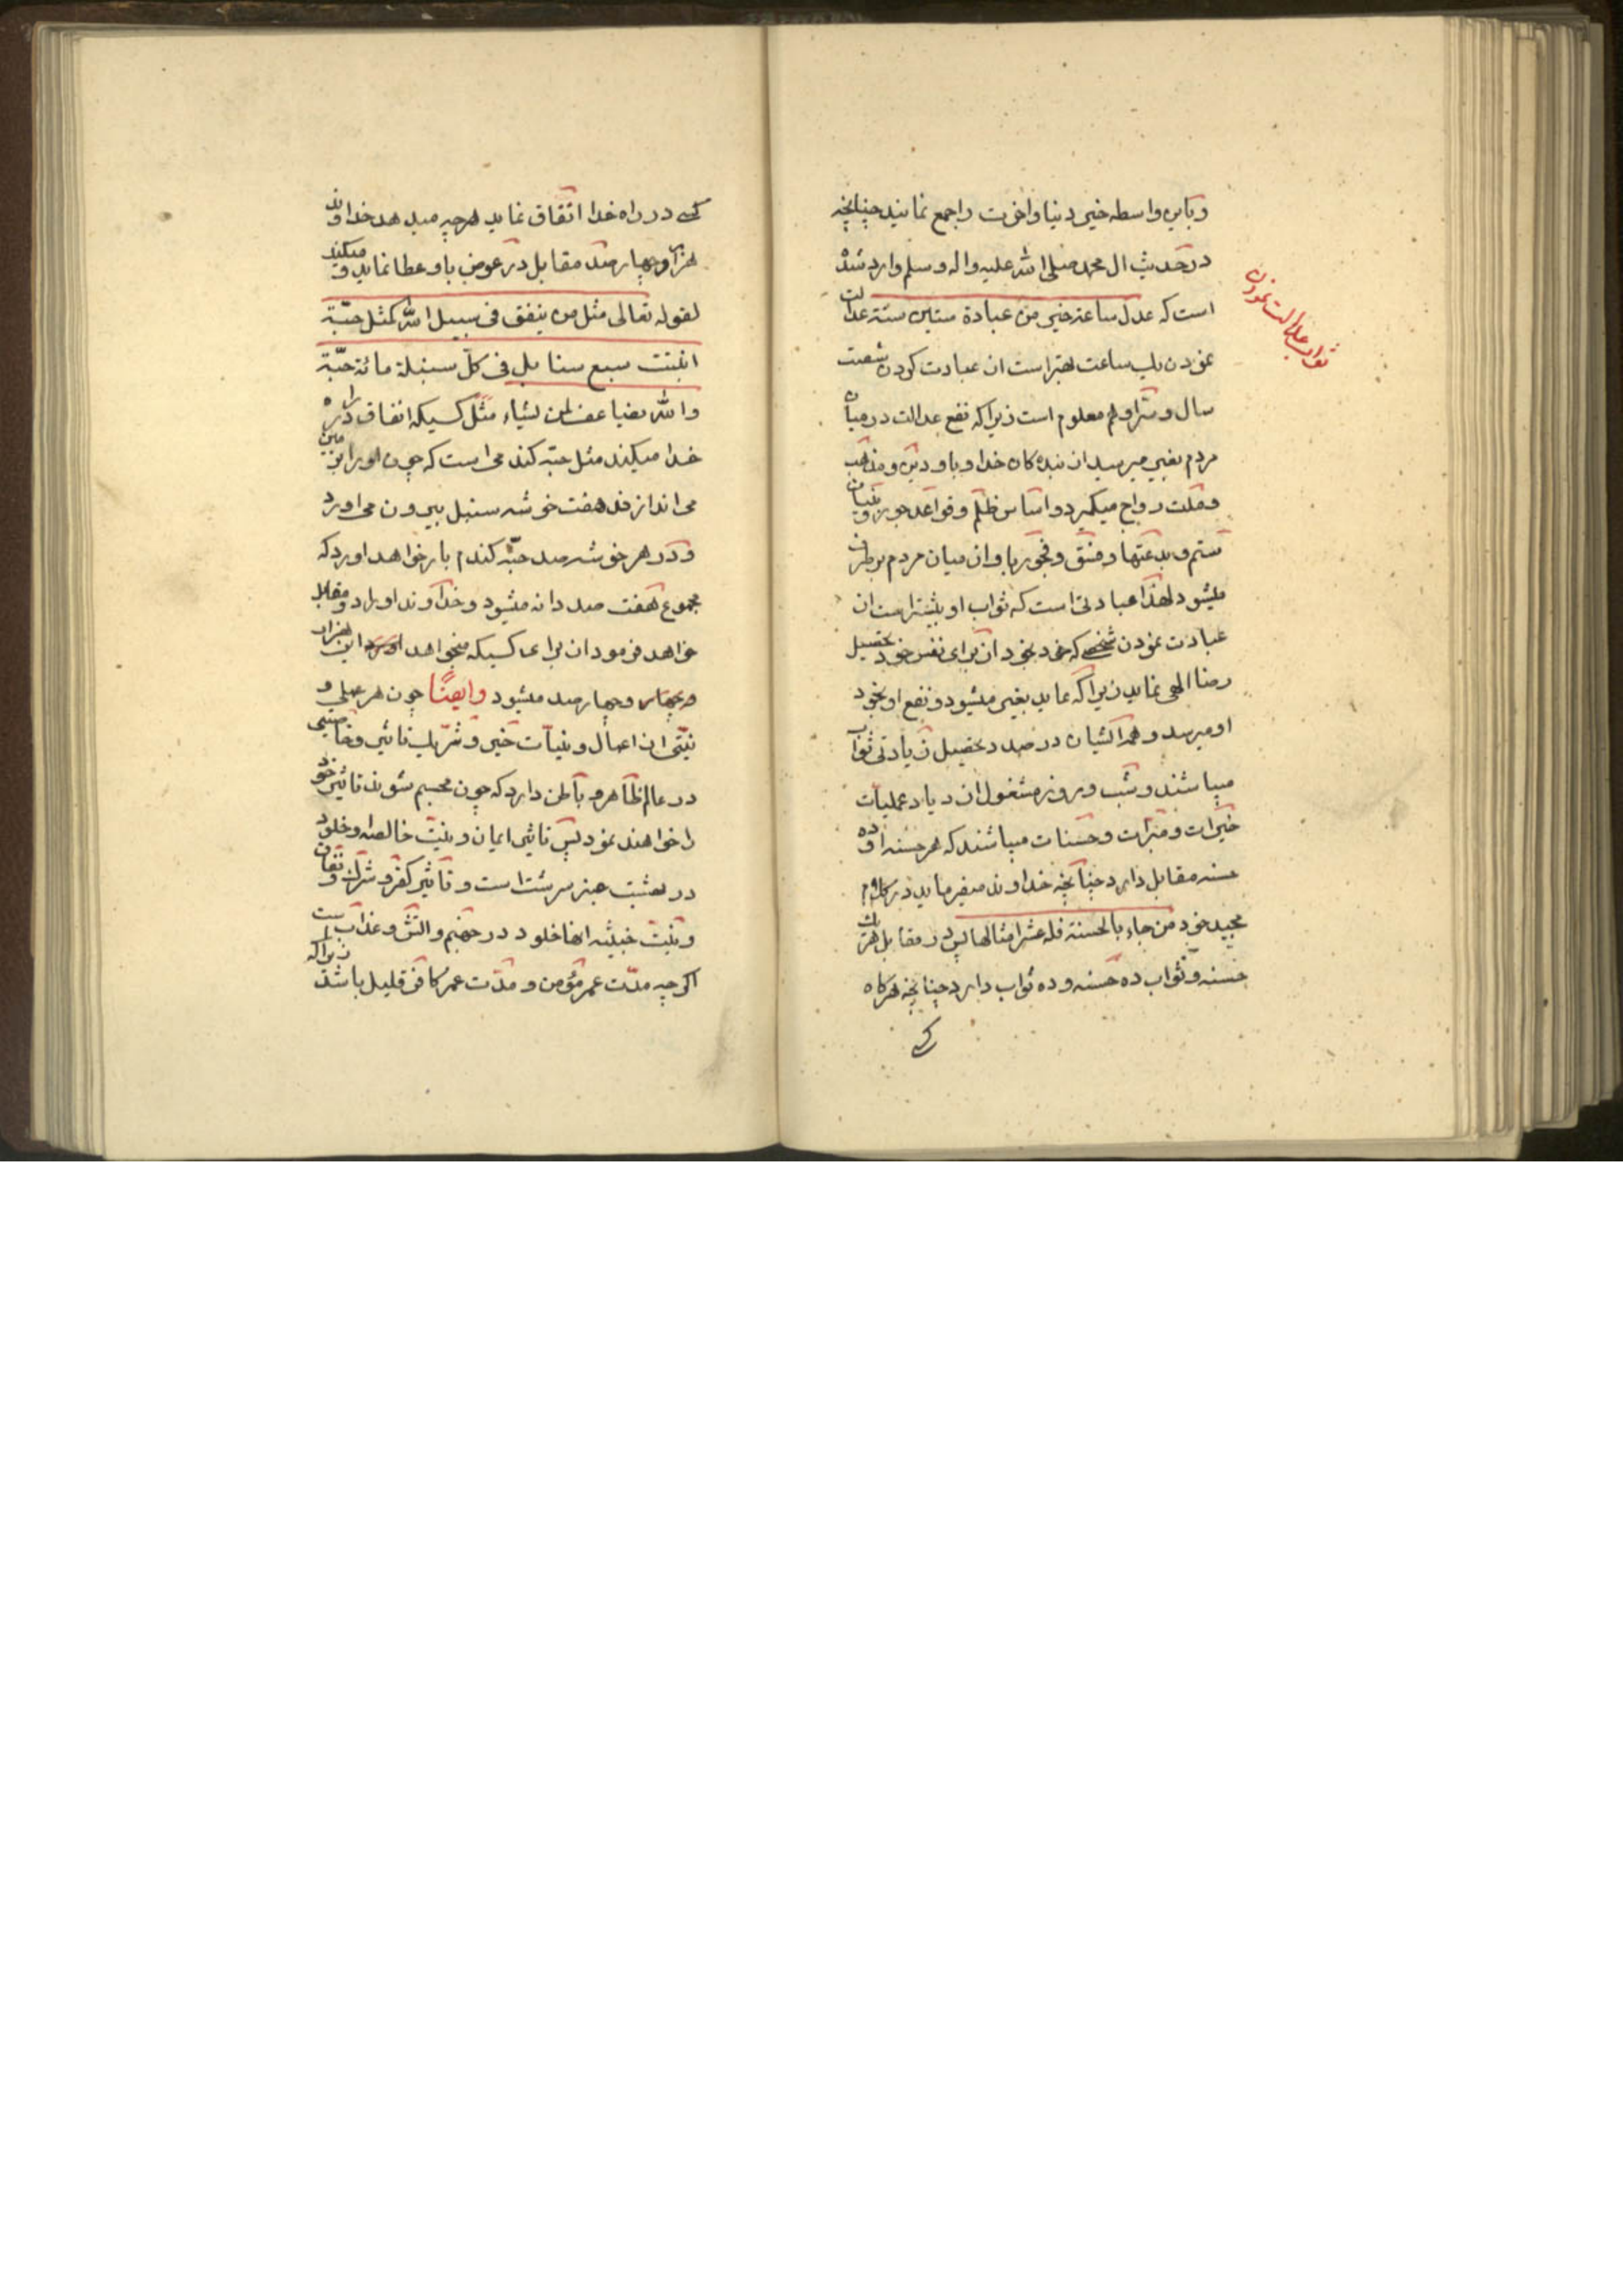 و باین واسطه خیر دنیا و اخرت را جمع نمایند چنانچه
در حدیث ال محمد صلی الله علیه و اله و سلم وارد شده
است که عدل ساعة خیر من عبادة ستین سنة عدالت
نمودن یک ساعت بهتر است از عبادت کردن شصت
سال و سر او هم معلوم است زیرا که نفع عدالت در میان
مردم بغیر میرسد از بنده کان خدا و باو دین و مذهب
و ملت رواج میکیرد و اساس ظلم و قواعد جور و بنیان
ستم و بدعتها و فسق و فجور باو از میان مردم برطرف
میشود لهذا عبادتی است که ثواب او بیشتر است از
عبادت نمودن شخصی که خود بخود از برای نفس خود تحصیل
رضا الهی نماید زیرا که عاید بغیر میشود و نفع او بخود
او میرسد و هم اکر ایشان در صدد تحصیل زیادتی ثواب
میباشند و شب و روز مشغول ازدیاد عملیات
خیرات و مبرات و حسنات میباشند که هر حسنه او ده
حسنه مقابل دارد چنانچه خداوند میفرماید در کلام
مجید خود من جاء بالحسنة فله عشر امثالها پس در مقابل هر یک
حسنه و ثواب ده حسنه و ده ثواب دارد چنانچه هرکاه
کسی
ثواب عدالت نمودن
کسی در راه خدا انفاق نماید هرچه میدهد خداوند
هزار و چهار صد مقابل در عوض باو عطا نماید و میکند
لقوله تعالی مثل من ینفق فی سبیل الله کمثل حبّة
انبتت سبع سنابل فی کلّ سنبلة مائة حبّة
والله یضاعف لمن یشاء مثل کسیکه انفاق در راه
خدا میکند مثل حبّه کندمی است که چون او را بر زمین
می اندازند هفت خوشه سنبل بیرون می اورد
و در هر خوشه صد حبّه کندم بار خواهد اورد که
مجموع هفت صد دانه میشود و خداوند او را دو مقابل
خواهد فرمود از برای کسیکه میخواهد این هزار
و چهار صد میشود وایضًا چون هر عملی و
نیّتی از اعمال و نیات خیر و شرّ یک تاثیر و خاصیتی
در عالم ظاهر و باطن دارد که چون مجسم شوند تاثیر خود
را خواهند نمود پس تاثیر ایمان و نیّت خالصانه و خلود
در بهشت عنبر سرشت است و تاثیر کفر و شرک و نفاق
و نیّت خبیثه انها خلود در جهنم و اتش و عذاب است زیرا که
اکر چه مدّت عمر مؤمن و مدّت عمر کافر قلیل باشد